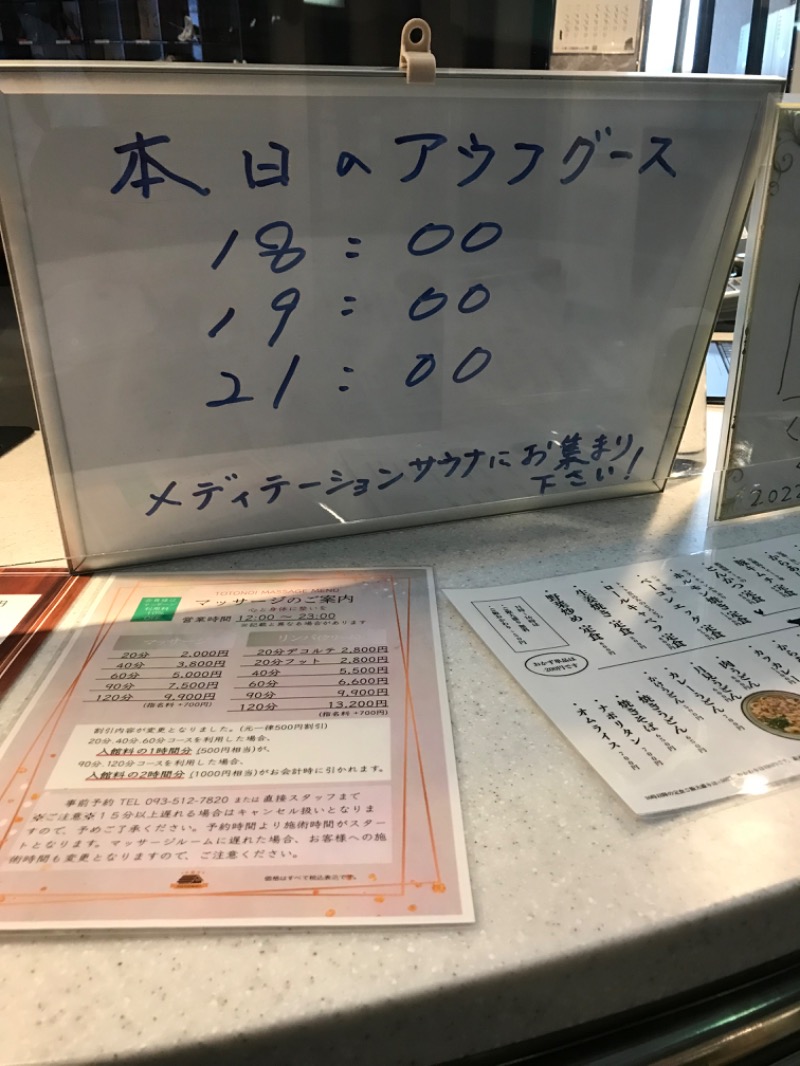 本日のアウフグース
18:00
19:00
21:00
メディテーションサウナにお集まり
下さい!
2022
TOTONOI MASSAGE MENU
マッサージのご案内
心と身体に整いを
営業時間 12:00 ~ 23:00
※記載と異なる場合があります
20分 2,000円
40分 3,800円
60分 5,000円
90分 7,500円
120分 9,900円
(指名料 +700円)
20分デコルテ 2,800円
20分フット 2,800円
40分 5,500円
60分 6,600円
90分 9,900円
120分 13,200円
(指名料 +700円)
割引内容が変更となりました。(元一律500円割引)
20分.40分.60分コースを利用した場合、
入館料の1時間分 (500円相当)が、
90分.120分コースを利用した場合、
入館料の2時間分 (1000円相当)がお会計時に引かれます。
事前予約 TEL 093-512-7820 または直接スタッフまで
※ご注意※15分以上遅れる場合はキャンセル扱いとなりま
すので、予めご了承ください。予約時間より施術時間がスター
トとなります。マッサージルームに遅れた場合、お客様への施
術時間も変更となりますので、ご注意ください。
価格はすべて税込表示です。
とんかつ定食
ホルモン焼き定食
ベーコンエッグ定食
ロールキャベツ定食
生姜焼き定食
野菜炒め定食
おかず単品は
200円引です
肉うどん
月見うどん
カレーうどん
かけうどん
焼きうどん
焼きそば
ナポリタン
オムライス